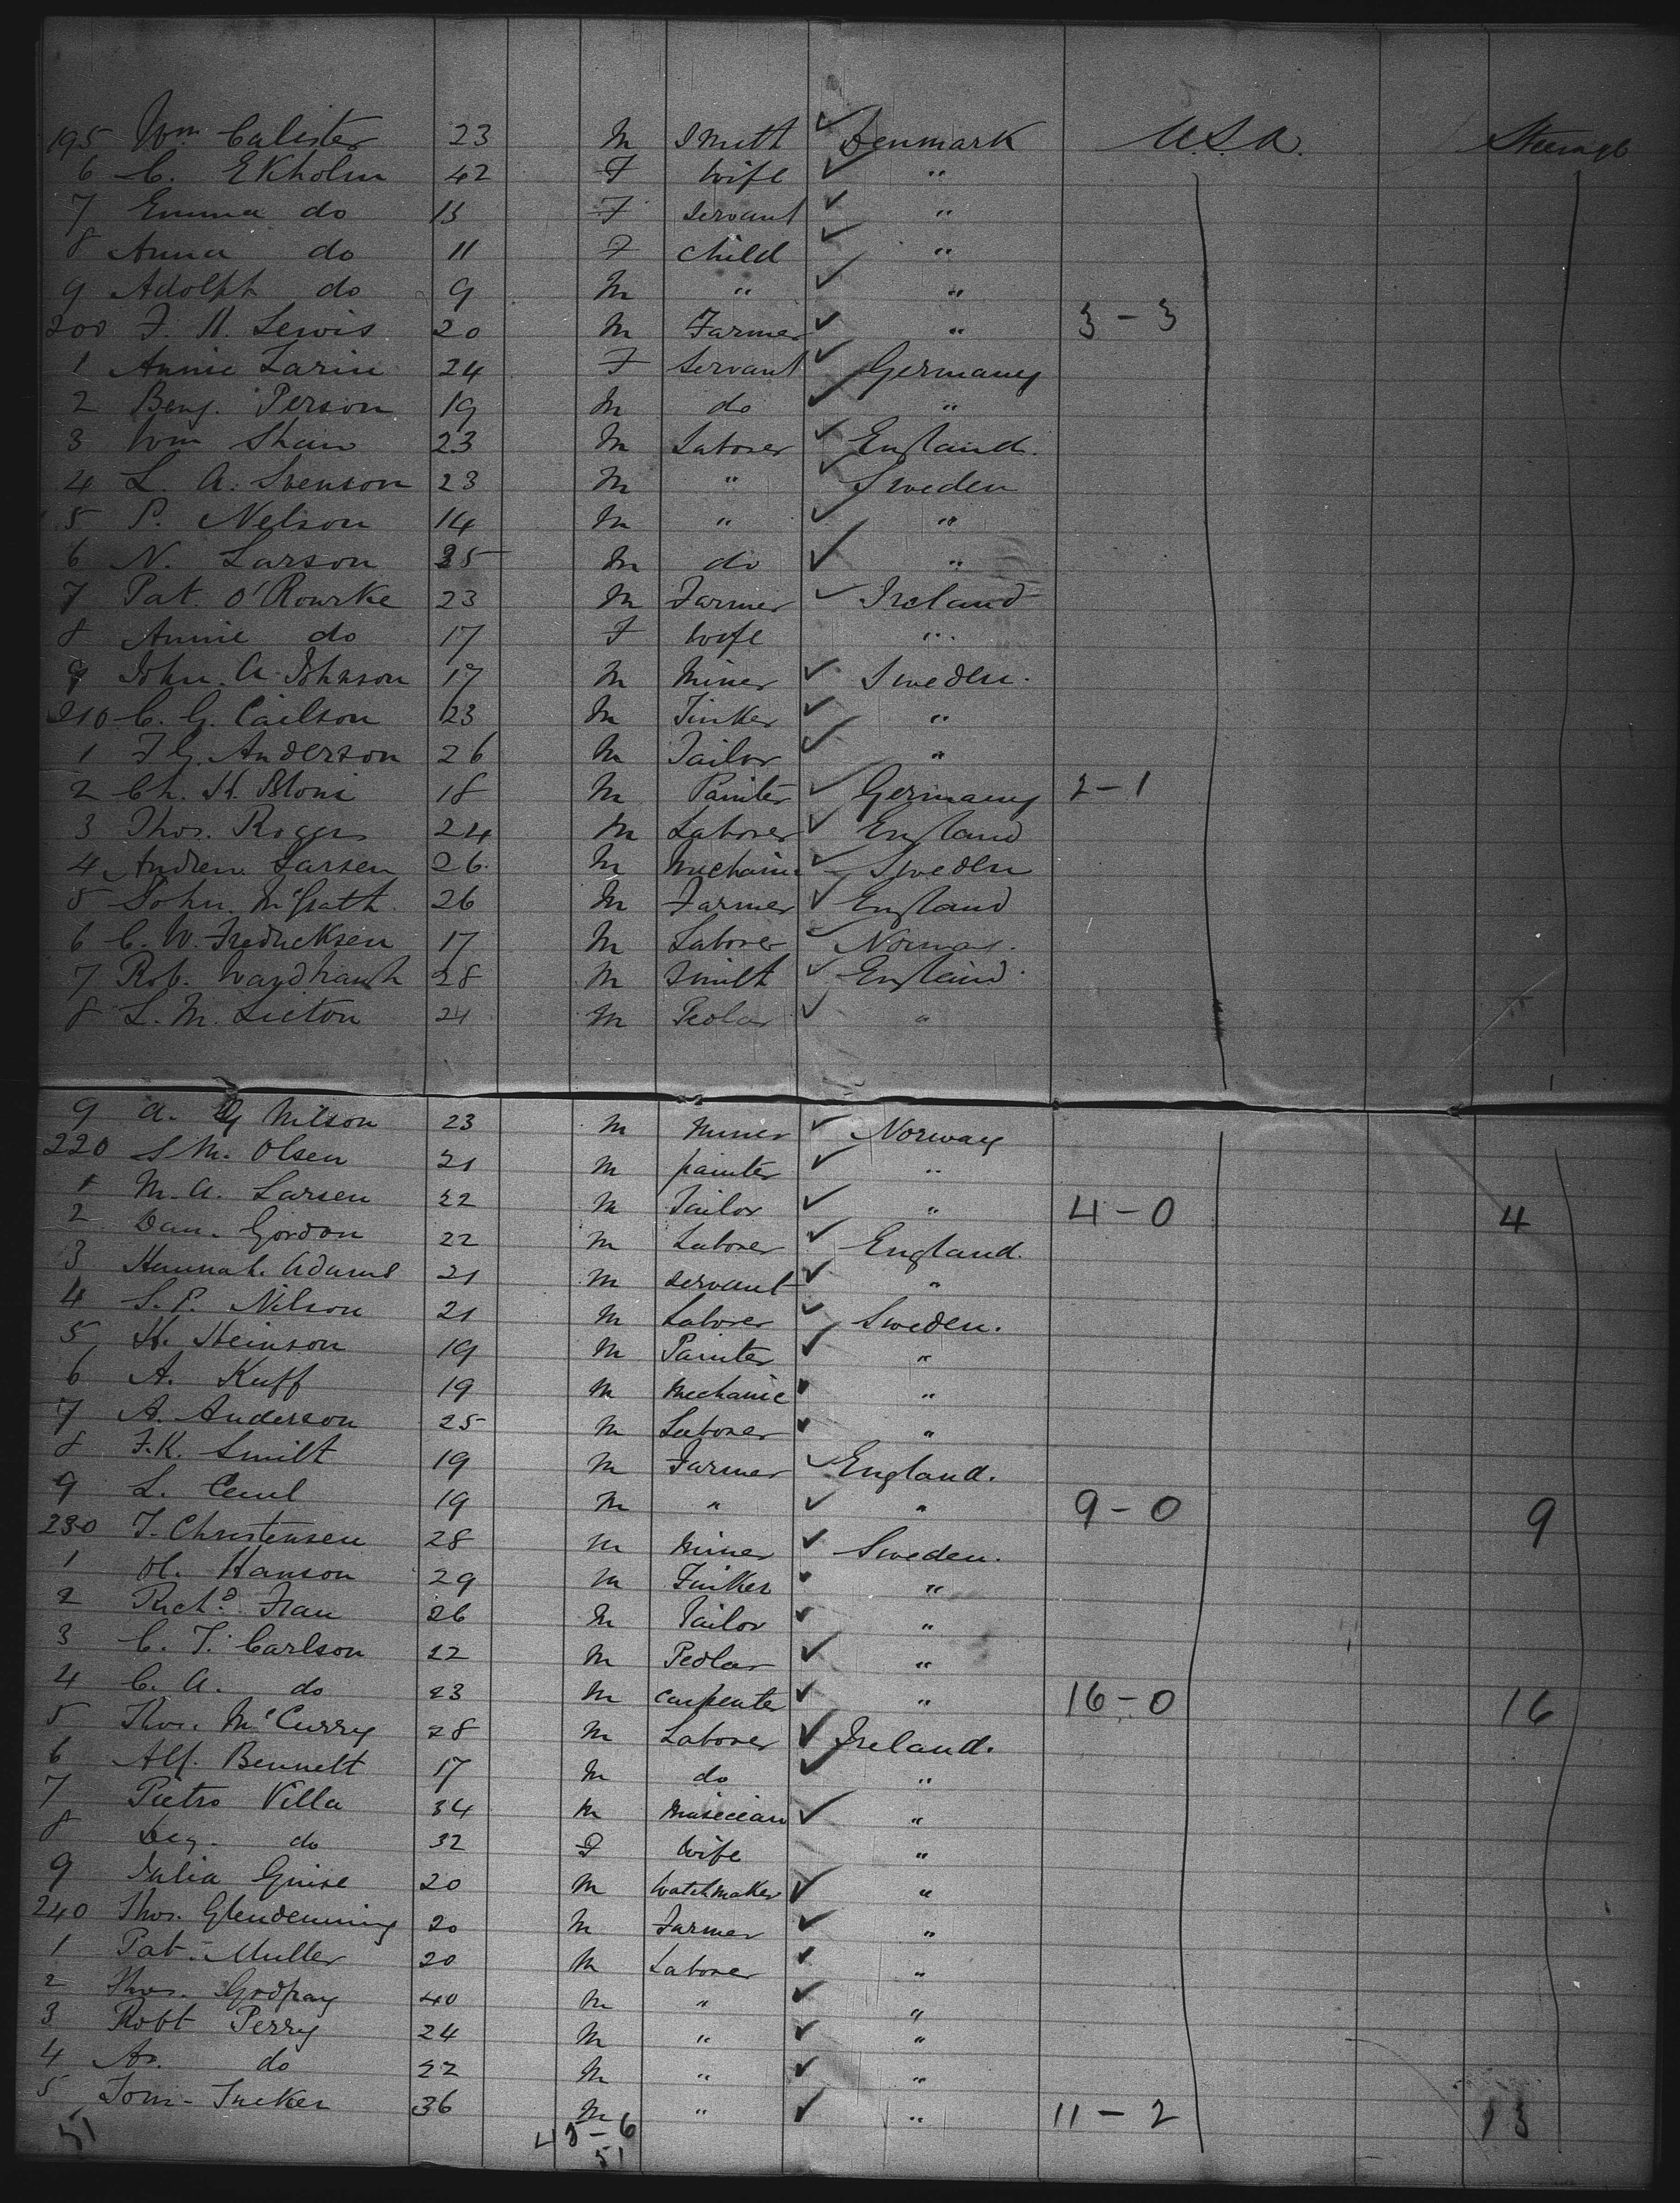 195 Wm Calister 23 M Smith ✓ Denmark U.S.A. Steerage
6 C. Ekholm 42 F Wife ✓ "
7 Emma do 13 F Servant ✓ "
8 Anna do 11 F Child ✓ "
9 Adolph do 9 M " ✓ "
200 F. H. Lewis 20 M Farmer ✓ " 3-3
1 Annie Larin 24 F Servant ✓ Germany
2 Benj. Person 19 M do ✓ "
3 Wm Shaw 23 M Laborer ✓ England.
4 L. A. Svenson 23 M " ✓ Sweden
5 P. Nelson 14 M " ✓ "
6 N. Larson 35 M do ✓ "
7 Pat. O'Rourke 23 M Farmer ✓ Ireland
8 Annie do 17 F Wife "
9 John. A. Johnson 17 M Miner ✓ Sweden.
210 C. G. Carlson 23 M Tinker ✓ "
1 F G. Anderson 26 M Tailor ✓ "
2 Ch. H. 18 M Painter ✓ Germany 2-1
3 Thos. Rogers 24 M Laborer ✓ England
4 Andrew Larsen 26. M Mechanic ✓ Sweden
5 John. McGrath 26 M Farmer ✓ England
6 C. W. Fredricksen 17 M Laborer ✓ Norway.
7 Rob. 28 M Smith ✓ England.
8 L. M. Lieton 24 M Pedlar ✓ "
9 A. G Nilson 23 M Miner ✓ Norway
220 S M. Olsen 21 M painter ✓ "
1 M. A. Larsen 22 M Tailor ✓ " 4-0 4
2 Dan. Gordon 22 M Laborer ✓ England.
3 Hannah. Adams 21 M servant ✓ "
4 S. P. Nilson 21 M Laborer ✓ Sweden.
5 H. Heinson 19 M Painter ✓ "
6 A. Kuff 19 M Mechanic ✓ "
7 A. Anderson 25 M Laborer ✓ "
8 F. K. Smith 19 M Farmer ✓ England.
9 L. 19 M " ✓ " 9-0 9
230 J. Christensen 28 M Miner ✓ Sweden.
1 H. Hanson 29 M Tinker ✓ "
2 Richd. Frau 26 M Tailor ✓ "
3 C. J. Carlson 22 M Pedlar ✓ "
4 C. A. do 23 M Carpenter ✓ " 16-0 16
5 Thos. McCurry 28 M Laborer ✓ Ireland.
6 Alf. Bennett 17 M do ✓ "
7 Pietro Villa 34 M Musician ✓ "
8 do 32 F Wife "
9 Julia Guise 20 M Watchmaker ✓ "
240 Thos. Glendenning 20 M Farmer ✓ "
1 Pat. Muller 20 M Laborer ✓ "
2 Thos. Godfray 40 M " ✓ "
3 Robt Perry 24 M " ✓ "
4 do 22 M " ✓ "
5 Tom. Tucker 36 M " ✓ " 11-2 13
51 45-6
51